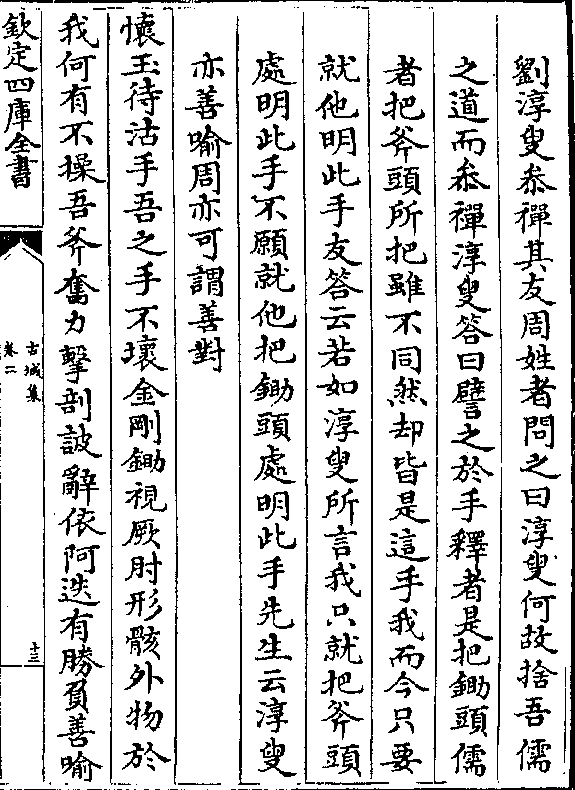 劉淳叟叅禪其友周姓者問之曰淳叟何故捨吾儒
之道而叅禪淳叟答曰譬之於手釋者是把鋤頭儒
者把斧頭所把雖不同然却皆是這手我而今只要
就他明此手友答云若如淳叟所言我只就把斧頭
處明此手不願就他把鋤頭處明此手先生云淳叟
亦善喻周亦可謂善對
懷玉待沽手吾之手不壞金剛鋤視厥肘形骸外物於
我何有不操吾斧奮力擊剖詖辭依阿迭有勝負善喻
欽定四庫全書
古城集
卷二
十三